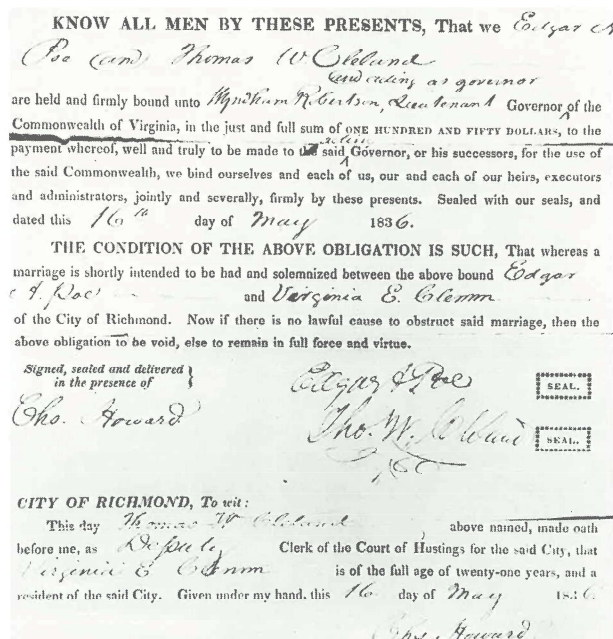 KNOW ALL MEN BY THESE PRESENTS, That we Edgar A
Poe and Thomas W Cleland
and acting as governor
are held and firmly bound unto Wyndham Robertson, Lieutenant Governor of the
Commonwealth of Virginia, in the just and full sum of ONE HUNDRED AND FIFTY DOLLARS, to the
acting
payment whereof, well and truly to be made to the said Governor, or his successors, for the use of
the said Commonwealth, we bind ourselves and each of us, our and each of our heirs, executors
and administrators, jointly and severally, firmly by these presents. Sealed with our seals, and
dated this 16th day of May 1836.
THE CONDITION OF THE ABOVE OBLIGATION IS SUCH, That whereas a
marriage is shortly intended to be had and solemnized between the above bound Edgar
A. Poe and Virginia E. Clemm
of the City of Richmond. Now if there is no lawful cause to obstruct said marriage, then the
above obligation to be void, else to remain in full force and virtue.
Signed, sealed and delivered
in the presence of
Edgar A Poe SEAL.
Chs. Howard
Tho. W. Cleland SEAL.
CITY OF RICHMOND, To wit:
This day Thomas W. Cleland above named, made oath
before me, as Deputy Clerk of the Court of Hustings for the said City, that
Virginia E Clemm is of the full age of twenty-one years, and a
resident of the said City. Given under my hand, this 16 day of May 1836.
Chs Howard